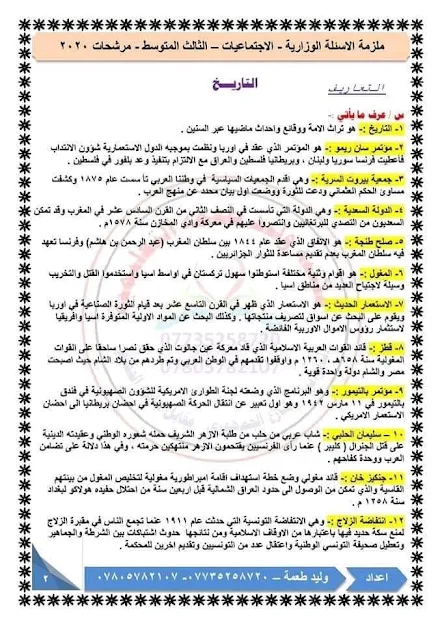 ملزمة الاسئلة الوزارية - الاجتماعيات – الثالث المتوسط - مرشحات ٢٠٢٠
التعاريف
التاريخ
س / عرف ما يأتي :-
١- التاريخ :- هو تراث الامة ووقائع واحداث ماضيها عبر السنين .
٢- مؤتمر سان ريمو :- هو المؤتمر الذي عقد في اوربا ونظمت بموجبه الدول الاستعمارية شؤون الانتداب
فأعطيت فرنسا سوريا ولبنان ، وبريطانيا فلسطين والعراق مع الالتزام بتنفيذ وعد بلفور في فلسطين .
٣- جمعية بيروت السرية :- وهي اقدم الجمعيات السياسية في وطننا العربي تأسست عام ١٨٧٥ وكشفت
مساوئ الحكم العثماني ودعت للثورة ووضعت اول بيان محدد عن منهج العرب .
٤- الدولة السعدية :- وهي الدولة التي تأسست في النصف الثاني من القرن السادس عشر في المغرب وقد تمكن
السعديون من التصدي للبرتغاليين والتصروا عليهم في معركة وادي المخازن سنة ١٥٧٨م .
٥- صلح طنجة :- هو الاتفاق الذي عقد عام ١٨٤٤ بين سلطان المغرب (عبد الرحمن بن هاشم) وفرنسا تعهد
فيه سلطان المغرب بعدم تقديم مساعدة للثوار الجزائريين .
٦- المغول :- هو اقوام وثنية مختلفة استوطنوا سهول تركستان في اواسط اسيا واستخدموا القتل والتخريب
وسيلة لاجتياح العديد من مناطق اسيا .
٧- الاستعمار الحديث :- هو الاستعمار الذي ظهر في القرن التاسع عشر بعد قيام الثورة الصناعية في اوربا
ويقوم على البحث عن اسواق لتصريف منتجاتها . وكذلك البحث عن المواد الاولية المتوفرة اسيا وافريقيا
استثمار رؤوس الاموال الاوربية الفائضة .
٨- قطز :- قائد القوات العربية الاسلامية الذي قاد معركة عين جالوت الذي حقق نصرا ساحقا على القوات
المغولية سنة ٦٥٨هـ ، ١٢٦٠ م واوقفوا تقدمهم في الوطن العربي وتم طردهم من بلاد الشام حيث اصبحت
مصر والشام دولة واحدة قوية .
٩- مؤتمر بالتيمور :- وهو البرنامج الذي وضعته لجنة الطوارئ الامريكية للشؤون الصهيونية في فندق
بالتيمور في ١١ مارس ١٩٤٢ وهو اول تعبير عن انتقال الحركة الصهيونية في احضان بريطانيا الى احضان
الاستعمار الامريكي .
١٠ – سليمان الحلبي :- شاب عربي من حلب من طلبة الازهر الشريف حمله شعوره الوطني وعقيدته الدينية
على قتل الجنرال ( كليبر ) عثما رأى الفرنسيين يقتحمون الازهر منتهكين حرمته ، وفي هذا دلالة على تضامن
العرب ووحدة كفاحهم .
١١- جنكيز خان :- قائد مغولي وضع خطة استهداف اقامة امبراطورية مغولية لتخليص المغول من بيئتهم
القاسية والذي تمكن من الوصول الى حدود العراق الشمالية قبل اربعين سنة من احتلال حفيده هولاكو لبغداد
سنة ١٢٥٨ م .
١٢- انتفاضة الزلاج :- وهي الانتفاضة التونسية التي حدثت عام ١٩١١ عثما تجمع الناس في مقبرة الزلاج
لمنع سكة حديد فيها باعتبارها من الاوقاف الاسلامية ومن نتائجها حدوث اشتباكات بين الشرطة والجماهير
وتعطيل صحيفة التونسي الوطنية واعتقال عدد من التونسيين وتقديم اخرين للمحكمة .
اعداد
وليد طعمة – ٠٧٧٣٥٢٥٨٧٢٠ - ٠٧٨٠٥٧٨٢١٠٧
٢